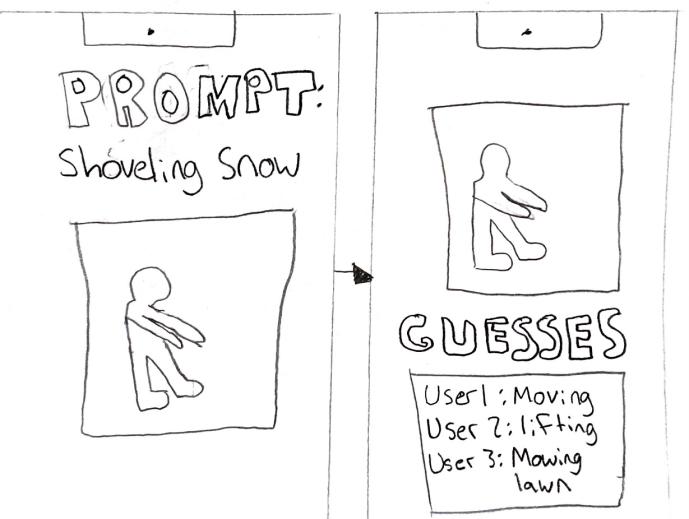 PROMPT:
Shoveling Snow
GUESSES
User 1: Moving
User 2: lifting
User 3: Mowing
lawn